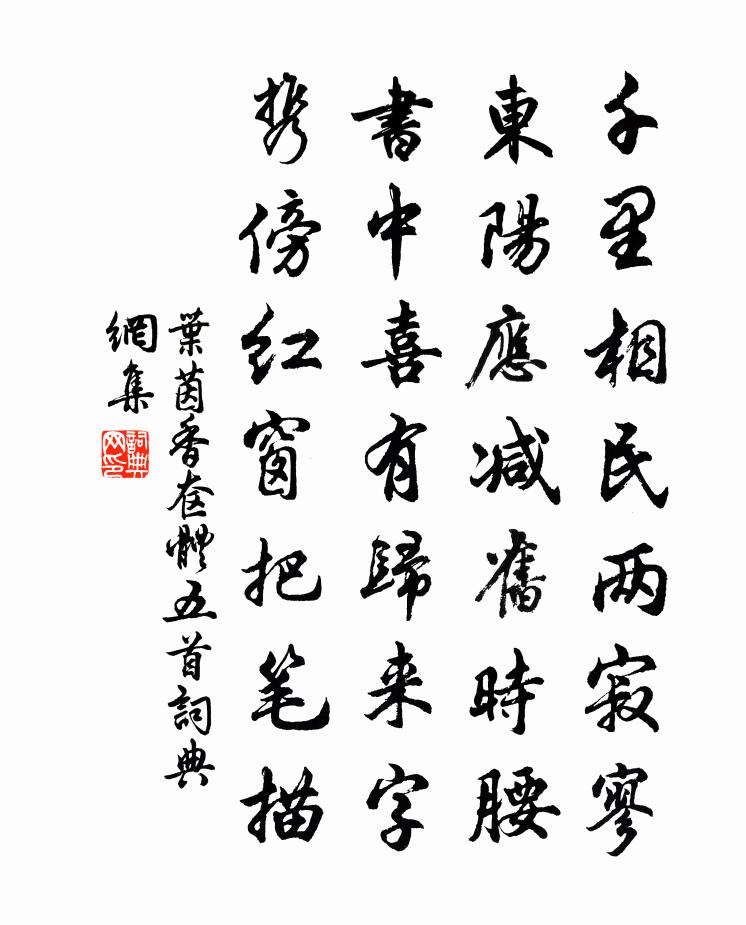 千里相民两寂寥
東陽應减舊時腰
書中喜有歸来字
携傍红窗把笔描
葉茵香奁體五首詞典
網集
詞典网印